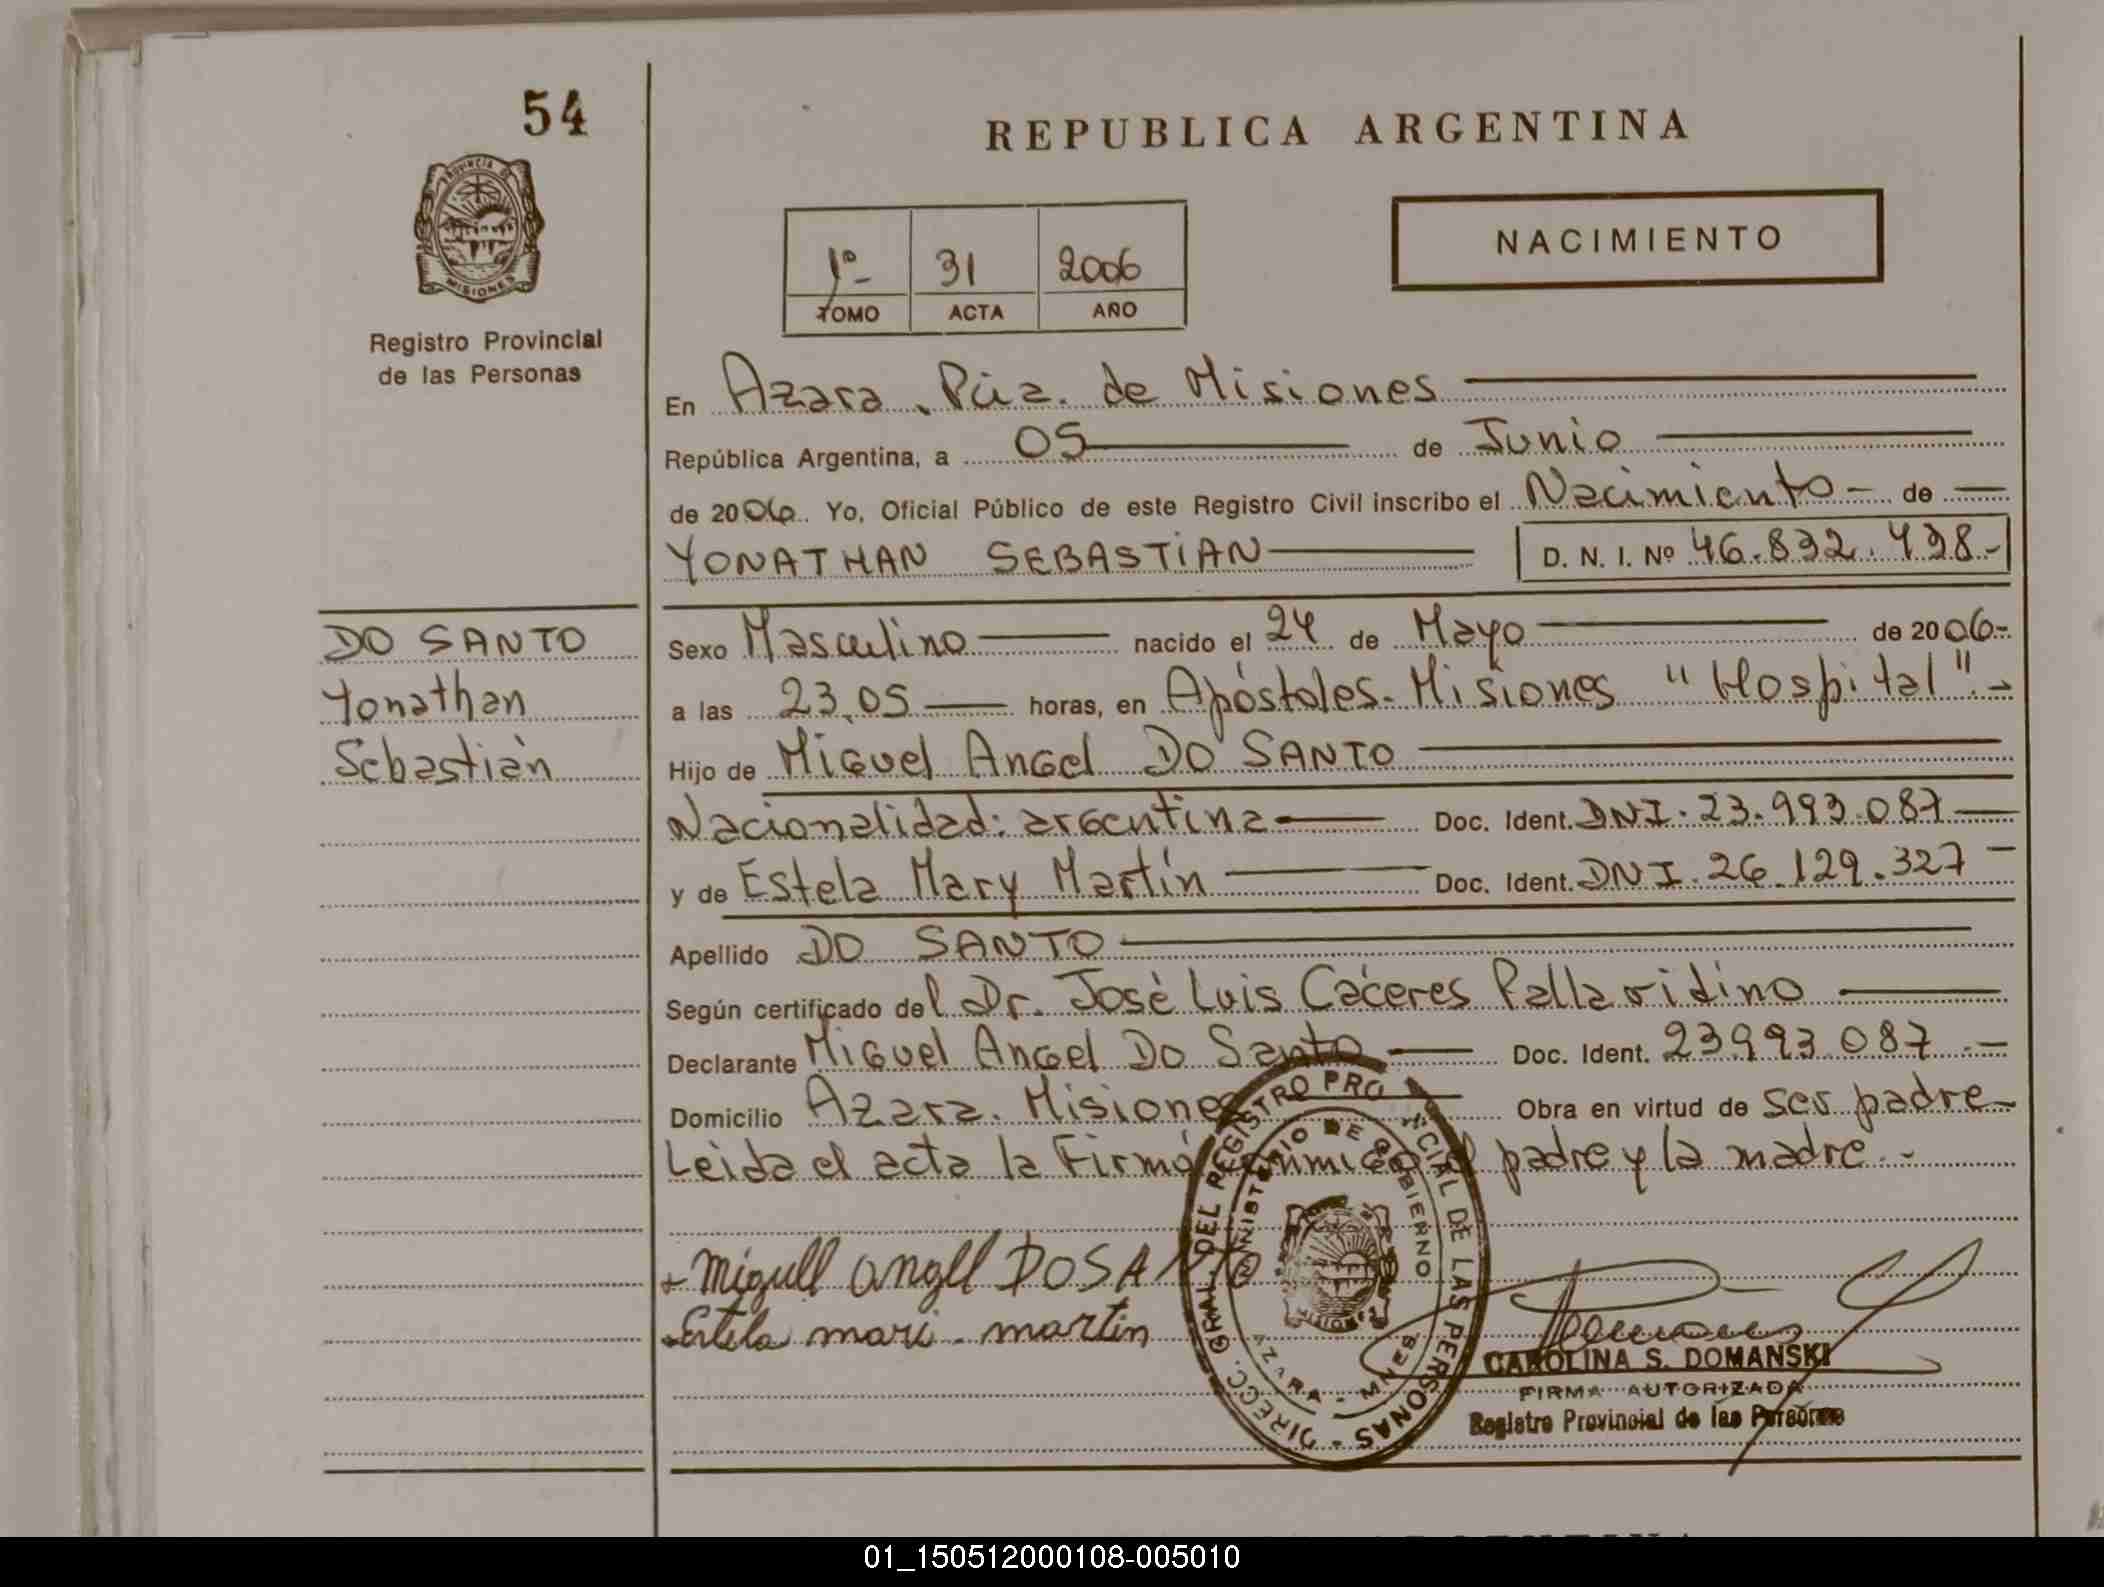 54
PROVINCIA DE
MISIONES
Registro Provincial
de las Personas
REPUBLICA ARGENTINA
1º- 31 2006
TOMO ACTA AÑO
NACIMIENTO
En Azara, Pcia. de Misiones
República Argentina, a 05 de Junio
de 2006. Yo, Oficial Público de este Registro Civil inscribo el Nacimiento - de
YONATHAN SEBASTIAN D. N. I. Nº 46.832.438-
DO SANTO
Yonathan
Sebastián
Sexo Masculino nacido el 24 de Mayo de 2006.-
a las 23,05 horas, en Apóstoles- Misiones "Hospital".-
Hijo de Miguel Angel DO SANTO
Nacionalidad: argentina Doc. Ident. DNI. 23.993.087
y de Estela Mary Martín Doc. Ident. DNI. 26.129.327
Apellido DO SANTO
Según certificado del Dr. José Luis Cáceres
Declarante Miguel Angel Do Santo Doc. Ident. 23993.087.-
Domicilio Azara. Misiones Obra en virtud de ser padre
Leida el acta la Firmó conmigo el padre y la madre.-
Miguel angel DOSANTO
Estela mari. martin
DIRECC. GRAL. DEL REGISTRO PROVINCIAL DE LAS PERSONAS
MINISTERIO DE GOBIERNO
AZARA - MNES
MISIONES
CAROLINA S. DOMANSKI
FIRMA AUTORIZADA
Registro Provincial de las Personas
01_150512000108-005010